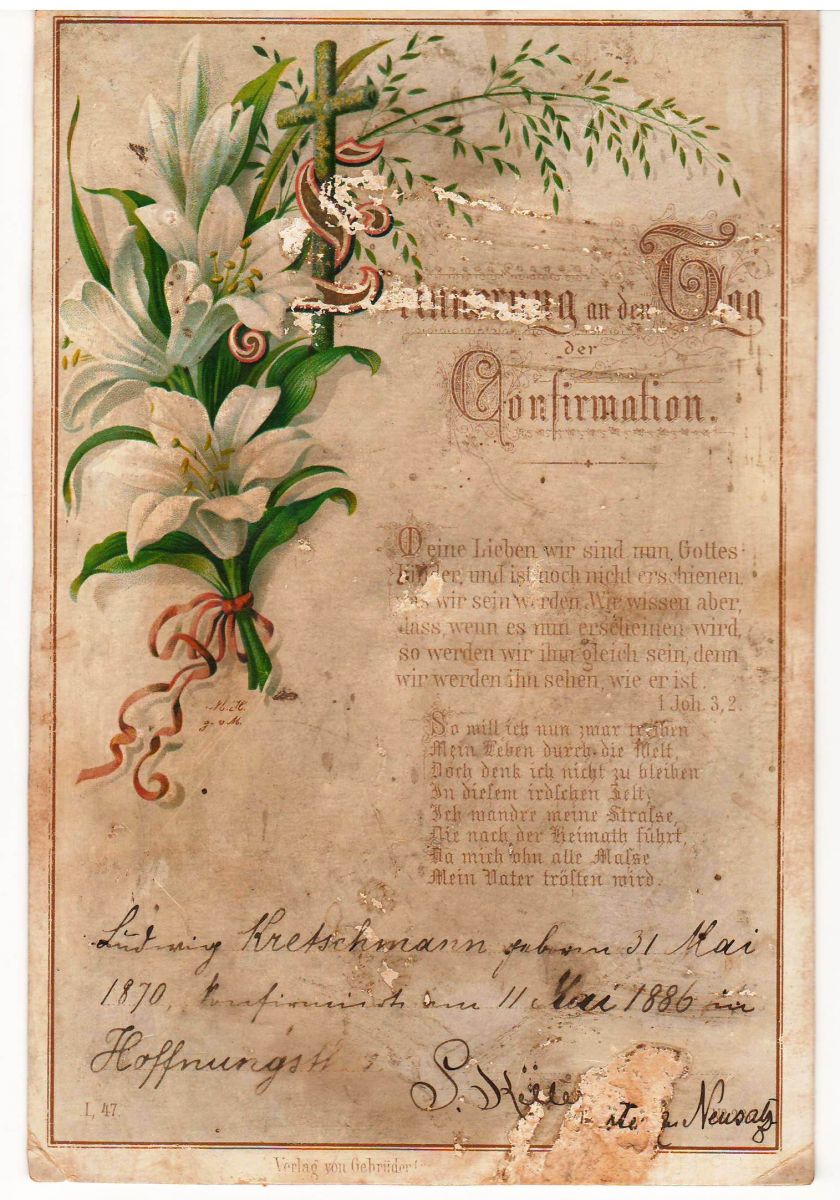 Erinnerung an den Tag
der
Confirmation.
Meine Lieben wir sind nun, Gottes
Kinder, und ist noch nicht erschienen,
was wir sein werden. Wir wissen aber,
dass, wenn es nun erscheinen wird,
so werden wir ihm gleich sein, denn
wir werden ihn sehen, wie er ist.
1 Joh. 3, 2.
So will ich nun zwar treiben
Mein Leben durch die Welt,
Doch denk ich nicht zu bleiben
In diesem irdschen Zelt,
Ich wandre meine Strasse,
Die nach der Heimath führt,
Da mich ohn alle Masse
Mein Vater trösten wird.
M. H.
g. v. M.
Ludwig Kretschmann geboren 31 Mai
1870, konfirmiert am 11 Mai 1886 in
S.
Neusatz
I, 47.
Verlag von Gebrüder